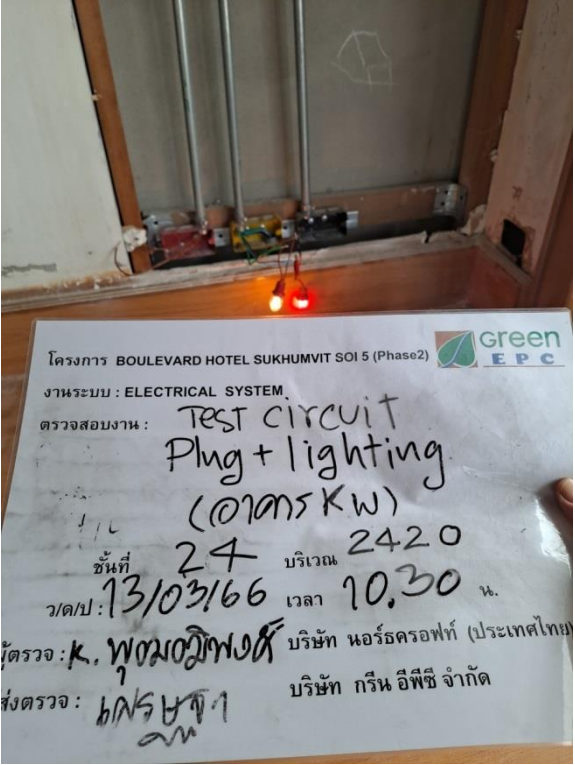 Green
EPC
โครงการ BOULEVARD HOTEL SUKHUMVIT SOI 5 (Phase2)
งานระบบ : ELECTRICAL SYSTEM
ตรวจสอบงาน : Test circuit
Plug + lighting
(อาคาร KW)
ชั้นที่ 24 บริเวณ 2420
ว/ด/ป : 13/03/66 เวลา 10.30 น.
ผู้ตรวจ : K. บริษัท นอร์ธครอฟท์ (ประเทศไทย)
ส่งตรวจ : เศรษฐา บริษัท กรีน อีพีซี จำกัด